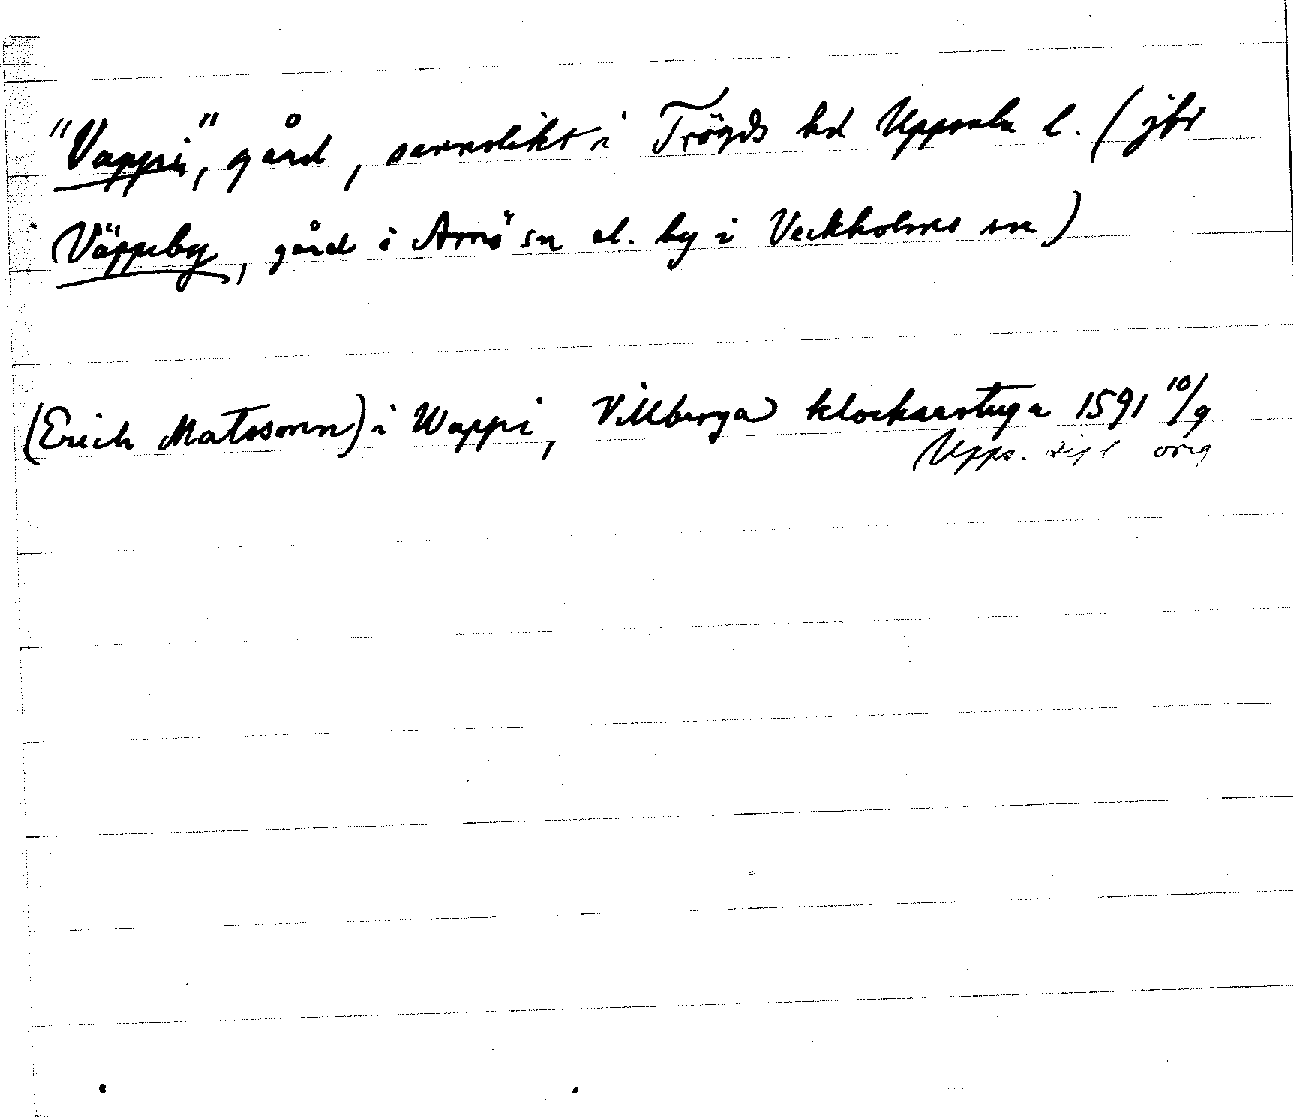 "Vappi", gård, sannolikt i Trögds hd Uppsala l. (jfr
Väppeby, gård i Arnö sn el. by i Veckholms sn)
(Erich Matssonn) i Wappi, Villberga klockarstuga 1591 10/9
Upps. dipl orig